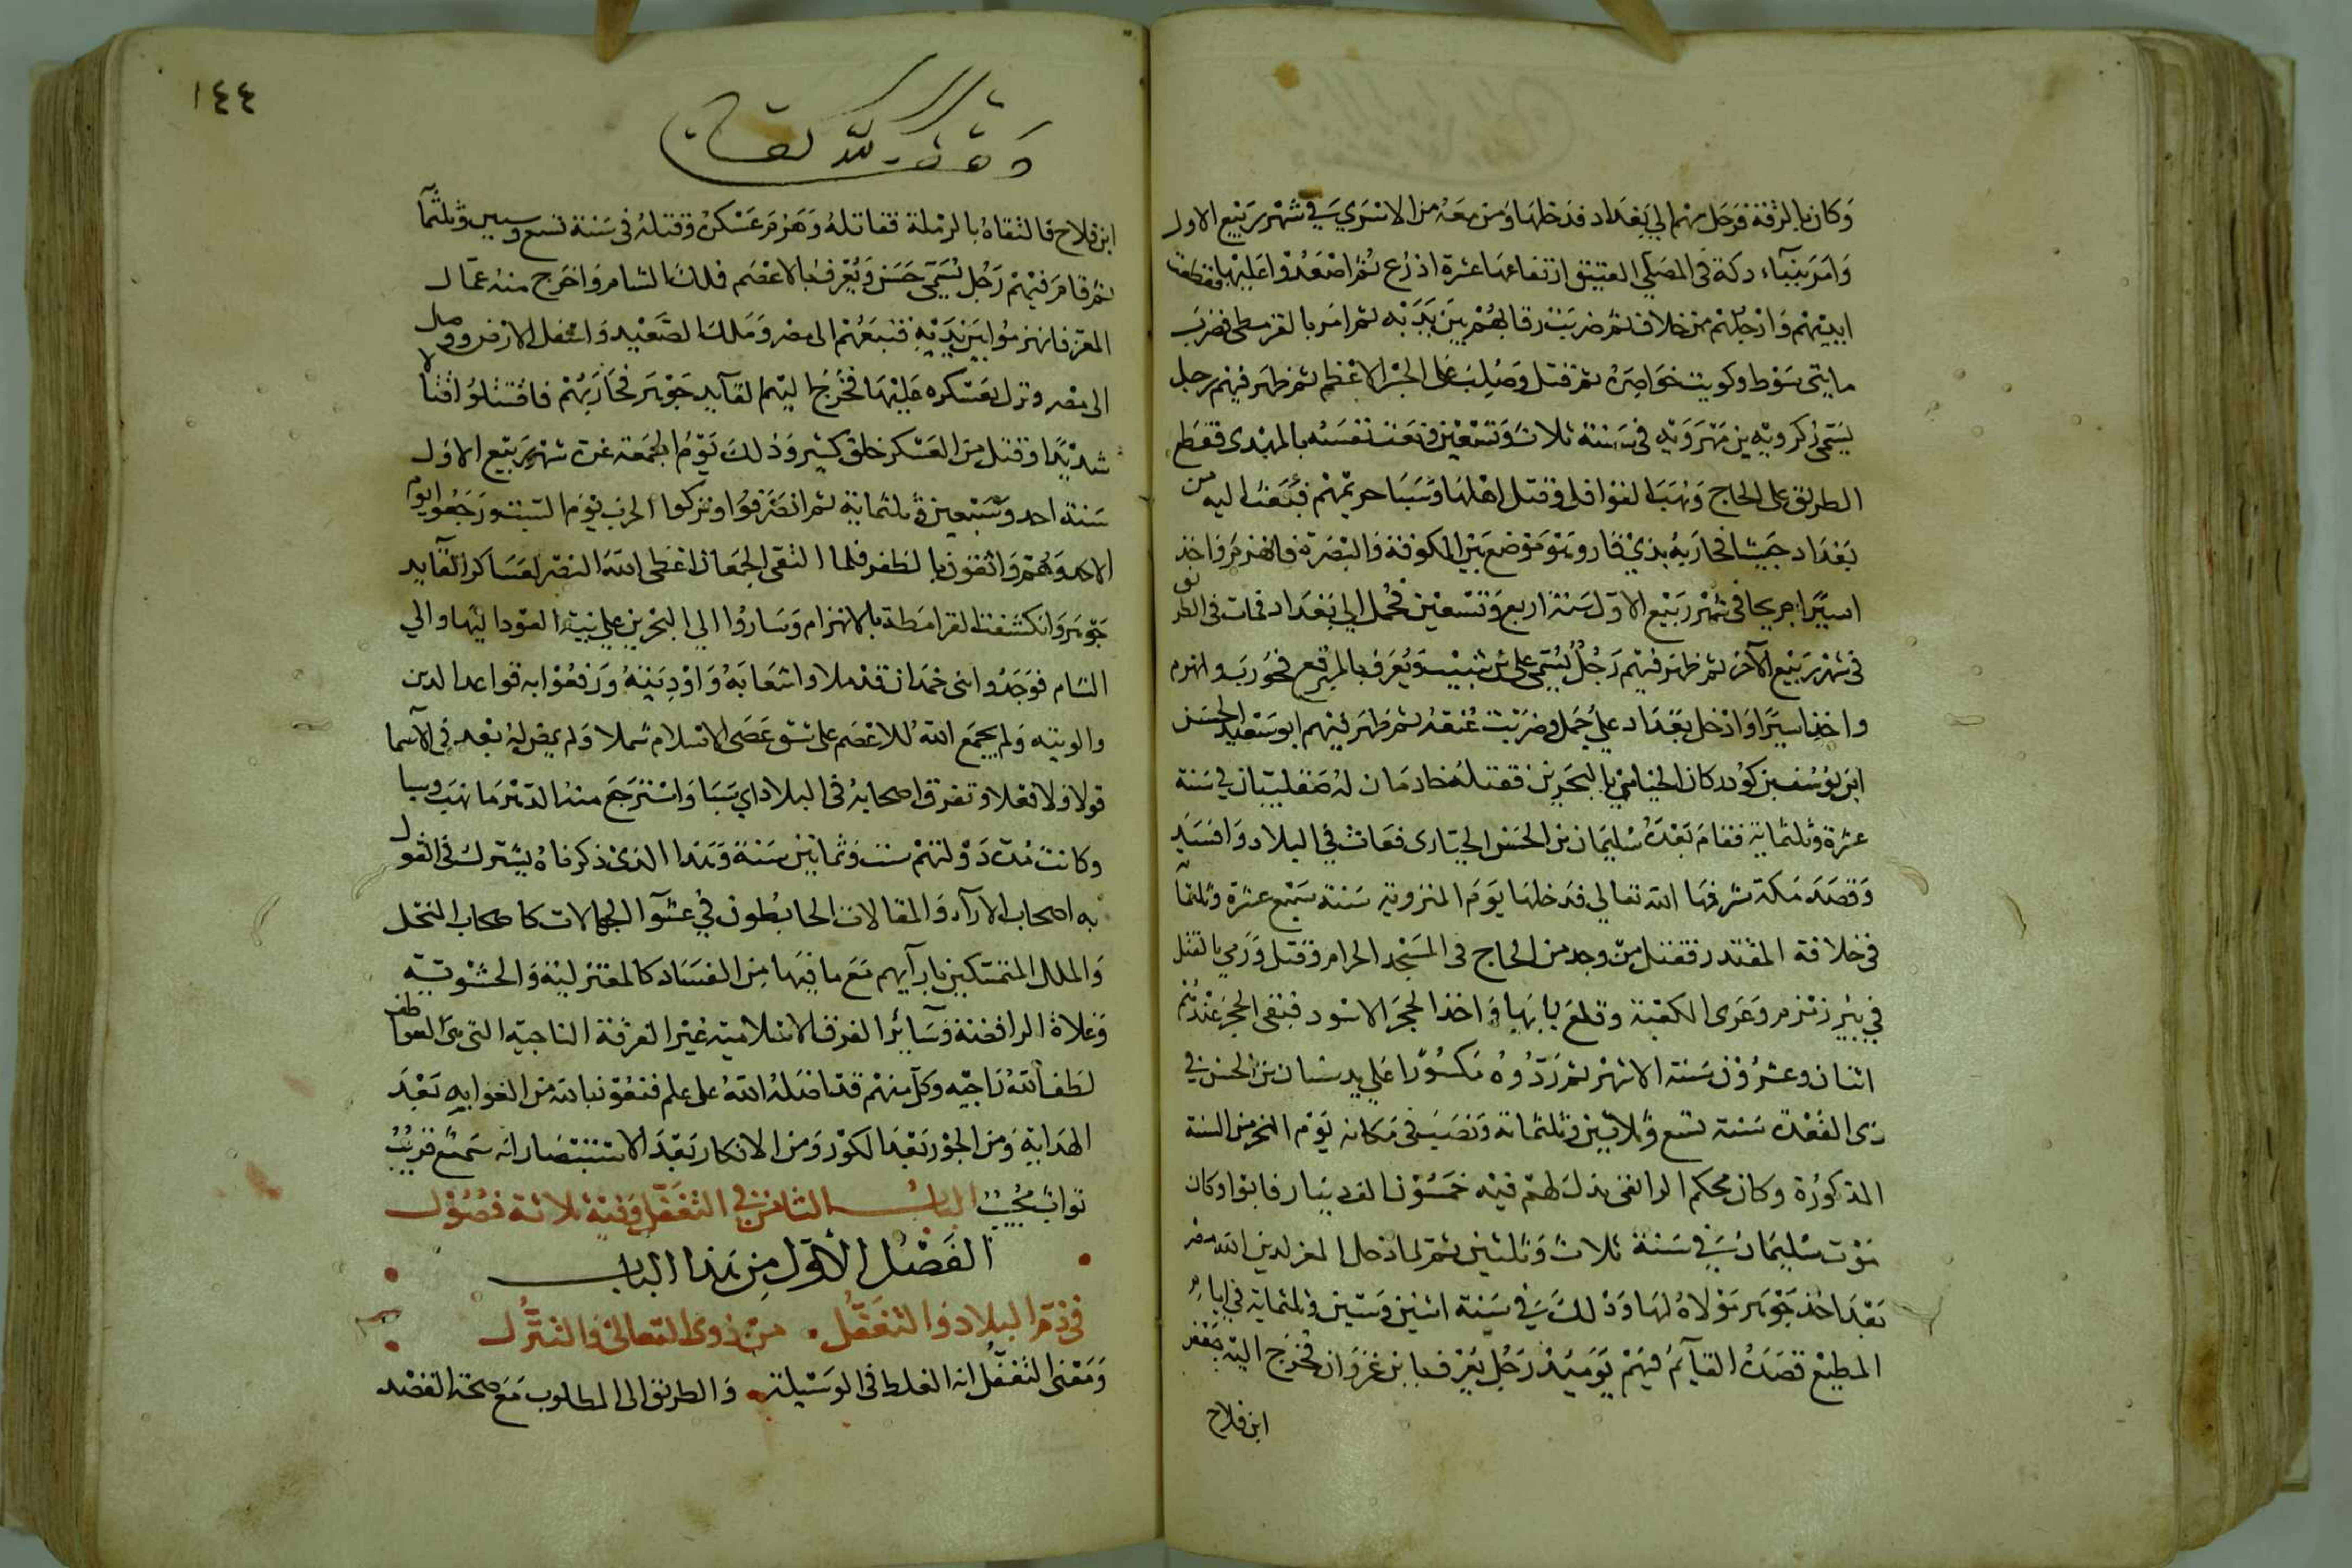 وكان بالرقة فرحل بهم الي بغداد فدخلها ومن معه من الاسري في شهر ربيع الاول
وامر ببناء دكة في المصلي العتيق ارتفاعها عشرة اذرع ثم اصعدوا عليها فقطعت
ايديهم وارجلهم من خلاف ثم ضربت رقابهم بين يديه ثم امر بالقرمطي فضرب
مايتي سوط وكويت خواصره ثم قتل وصلب على الجسر الاعظم ثم ظهر فيهم رجل
يسمى ذكرويه بن مهرويه في سنة ثلاث وتسعين ونعت نفسه بالمهدى فقطع
الطريق على الحاج ونهب القوافل وقتل اهلها وسبا حريمهم فبعث اليه من
بغداد جيشا فحاربه بذي قار وهو موضع بين الكوفة والبصرة فانهزم واخذ
اسيرا جريحا في شهر ربيع الاول سنة اربع وتسعين فحمل الي بغداد فمات في الطريق
في شهر ربيع الآخر ثم ظهر فيهم رجل يسمى على بن شبيب ويعرف بالمبرقع فحورب وانهزم
واخذ اسيرا وادخل بغداد علي جمل وضربت عنقه ثم ظهر فيهم ابو سعيد الحسن
ابن يوسف بن كودركان الجنابي بالبحرين فقتله خادمان له صقلبيان في سنة
عشرة وثلثماية فقام بعده سليمان بن الحسن الجنابى فعاث في البلاد وافسد
وقصد مكة شرفها الله تعالي فدخلها يوم التروية سنة سبع عشرة وثلثما
في خلافة المقتدر فقتل من وجد من الحاج في المسجد الحرام وقتل ورمي بالقتلى
في بير زمزم وعرى الكعبة وقلع بابها واخذ الحجر الاسود فبقي الحجر عندهم
اثنان وعشرون سنة الا شهر ثم ردوه مكسورا علي يد سنان بن الحسن في
ذى القعدة سنة تسع وثلاثين وثلثماية ونصب في مكانه يوم النحر من السنة
المذكورة وكان محكم الرايقي بذل لهم فيه خمسون الف دينار فابوا وكان
موت سليمان في سنة ثلاث وثلثين ثم لما دخل المعز لدين الله مصر
بعد اخذ جوهر مولاه لها وذلك في سنة اثنين وستين وثلثماية في ايام
المطيع قصده القايم فيهم يوميذ رجل يعرف بابن غزوان فخرج اليه جعفر
ابن فلاح
١٤٤
وقف لله تعالى
ابن فلاح فالتقاه بالرملة فقاتله وهزم عسكره وقتله في سنة تسع وستين وثلثما
ثم قام فيهم رجل يسمى حسن ويعرف بالاعصم فملك الشام واخرج منه عمال
المعز فانهزموا بين يديه فتبعهم الى مصر وملك الصعيد واسفل الارض ووصل
الى مصر ونزل بعسكره عليها فخرج اليهم القآيد جوهر فحاربهم فاقتتلوا قتالا
شديدا وقتل من العسكر خلق كثير وذلك يوم الجمعة غرة شهر ربيع الاول
سنة احد وسبعين وثلثماية ثم انصرفوا وتركوا الحرب يوم السبت ورجعوا يوم
الاحد وهم واثقون بالظفر فلما التقى الجمعان اعطى الله النصر لعساكر القآيد
جوهر وانكشفت القرامطة بالانهزام وساروا الي البحرين علي نية العود اليها والي
الشام فوجدوا بني حمدان قد ملاوا شعابه واوديته ورفعوا به قواعد الدين
والويته ولم يجمع الله للاعصم على شق عصى الاسلام شملا ولم يمض له بعد في الاسما
قولا ولا فعلا وتفرق اصحابه في البلاد ايدي سبا واسترجع منه الدهر ما نهب وسبا
وكانت مدة دولتهم ست وثمانين سنة وهذا الذي ذكرناه يشترك في القول
به اصحاب الارآء والمقالات الخابطون في عشوآ الجهالات كاصحاب النحل
والملل المتمسكين بارآيهم مع ما فيها من الفساد كالمعتزلية والحشوية
وغلاة الرافضة وسآئر الفرق الاسلامية غير الفرقة الناجيه التي هي العواطف
لطف الله ناجيه وكل منهم قد اضله الله على علم فنعوذ بالله من الغوايه بعد
الهداية ومن الجور بعد الكور ومن الانكار بعد الاستبصار انه سميع قريب
تواب مجيب الباب الثامن في التغفل وفيه ثلاثة فصول
الفصل الاول من هذا الباب
في ذم البلاد والتغفل من ذوى التعالي والتنزل
ومعنى التغفل انه الغلط في الوسيلة والطريق الى المطلوب مع صحة القصد